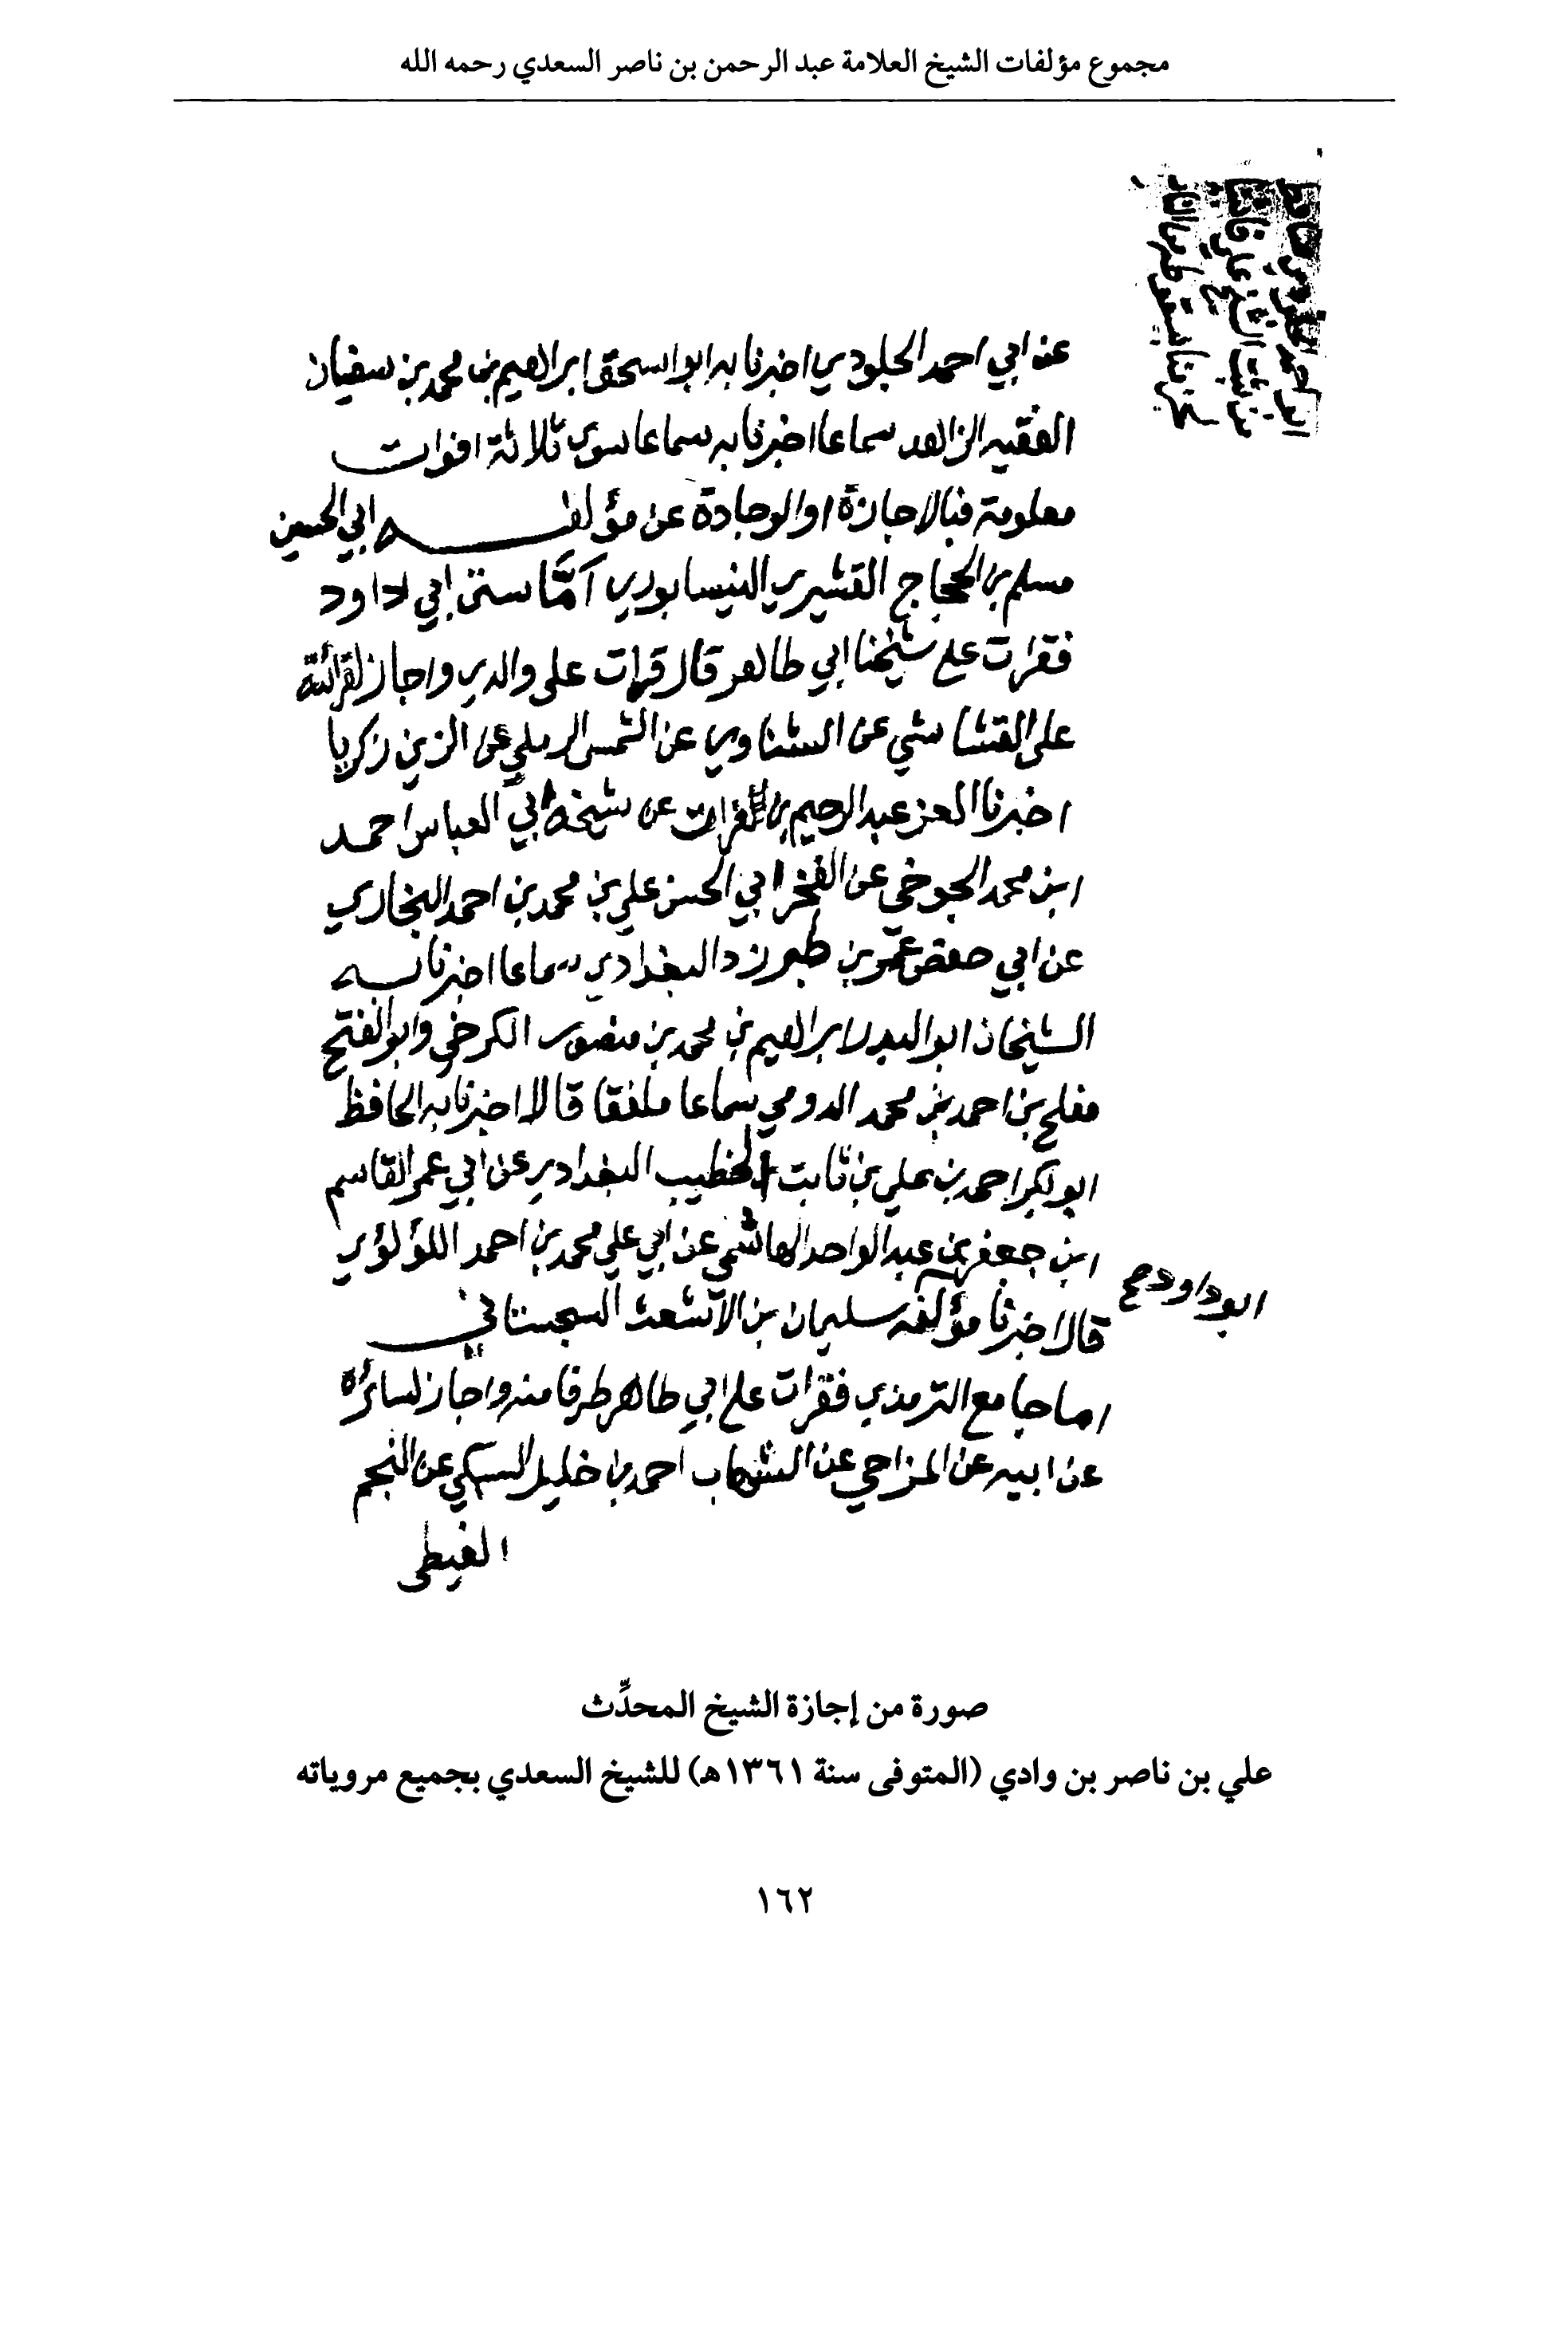 مجموع مؤلفات الشيخ العلامة عبد الرحمن بن ناصر السعدي رحمه الله
عن ابي احمد الجلودي اخبرنا به ابو اسحق ابراهيم بن محمد بن سفيان
الفقيه الزاهد سماعا اخبرنا به سماعا سوى ثلاثة افوات
معلومة فبالاجازة او الوجادة عن مؤلفه ابي الحسين
مسلم بن الحجاج القشيري النيسابوري أمَّا سنن ابي داود
فقرات على شيخنا ابي طاهر قال قرات على والدي واجاز لقرائته
على القشاشي عن الشناوي عن الشمس الرملي عن الزين زكريا
اخبرنا العز عبد الرحيم بن الفرات عن شيخه ابي العباس احمد
ابن محمد الجوخي عن الفخر ابي الحسن علي بن محمد بن احمد البخاري
عن ابي حفص عمر بن طبرزد البغدادي سماعا اخبرنا به
الشيخان ابو البدر ابراهيم بن محمد بن منصور الكرخي وابو الفتح
مفلح بن احمد بن محمد الدومي سماعا ملفقا قالا اخبرنا به الحافظ
ابو بكر احمد بن علي بن ثابت الخطيب البغدادي عن ابي عمر القاسم
ابن جعفر بن عبد الواحد الهاشمي عن ابي علي محمد بن احمد اللؤلؤي
ابو داود صح
قال اخبرنا مؤلفه سليمان بن الأشعث السجستاني
اما جامع الترمذي فقرات على ابي طاهر طرفا منه واجاز لسائره
عن ابيه عن المزاحي عن الشهاب احمد بن خليل السبكي عن النجم
الغيطى
صورة من إجازة الشيخ المحدِّث
علي بن ناصر بن وادي (المتوفى سنة ١٣٦١هـ) للشيخ السعدي بجميع مروياته
١٦٢